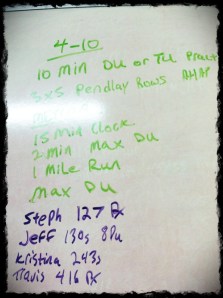 4-10
10 min DU or TU Pract
3x5 Pendlay Rows AHAP
15 Min Clock
2 min max DU
1 Mile Run
Max DU
Steph 127 Rx
Jeff 130s 8Du
Kristina 243s
Travis 416 Rx